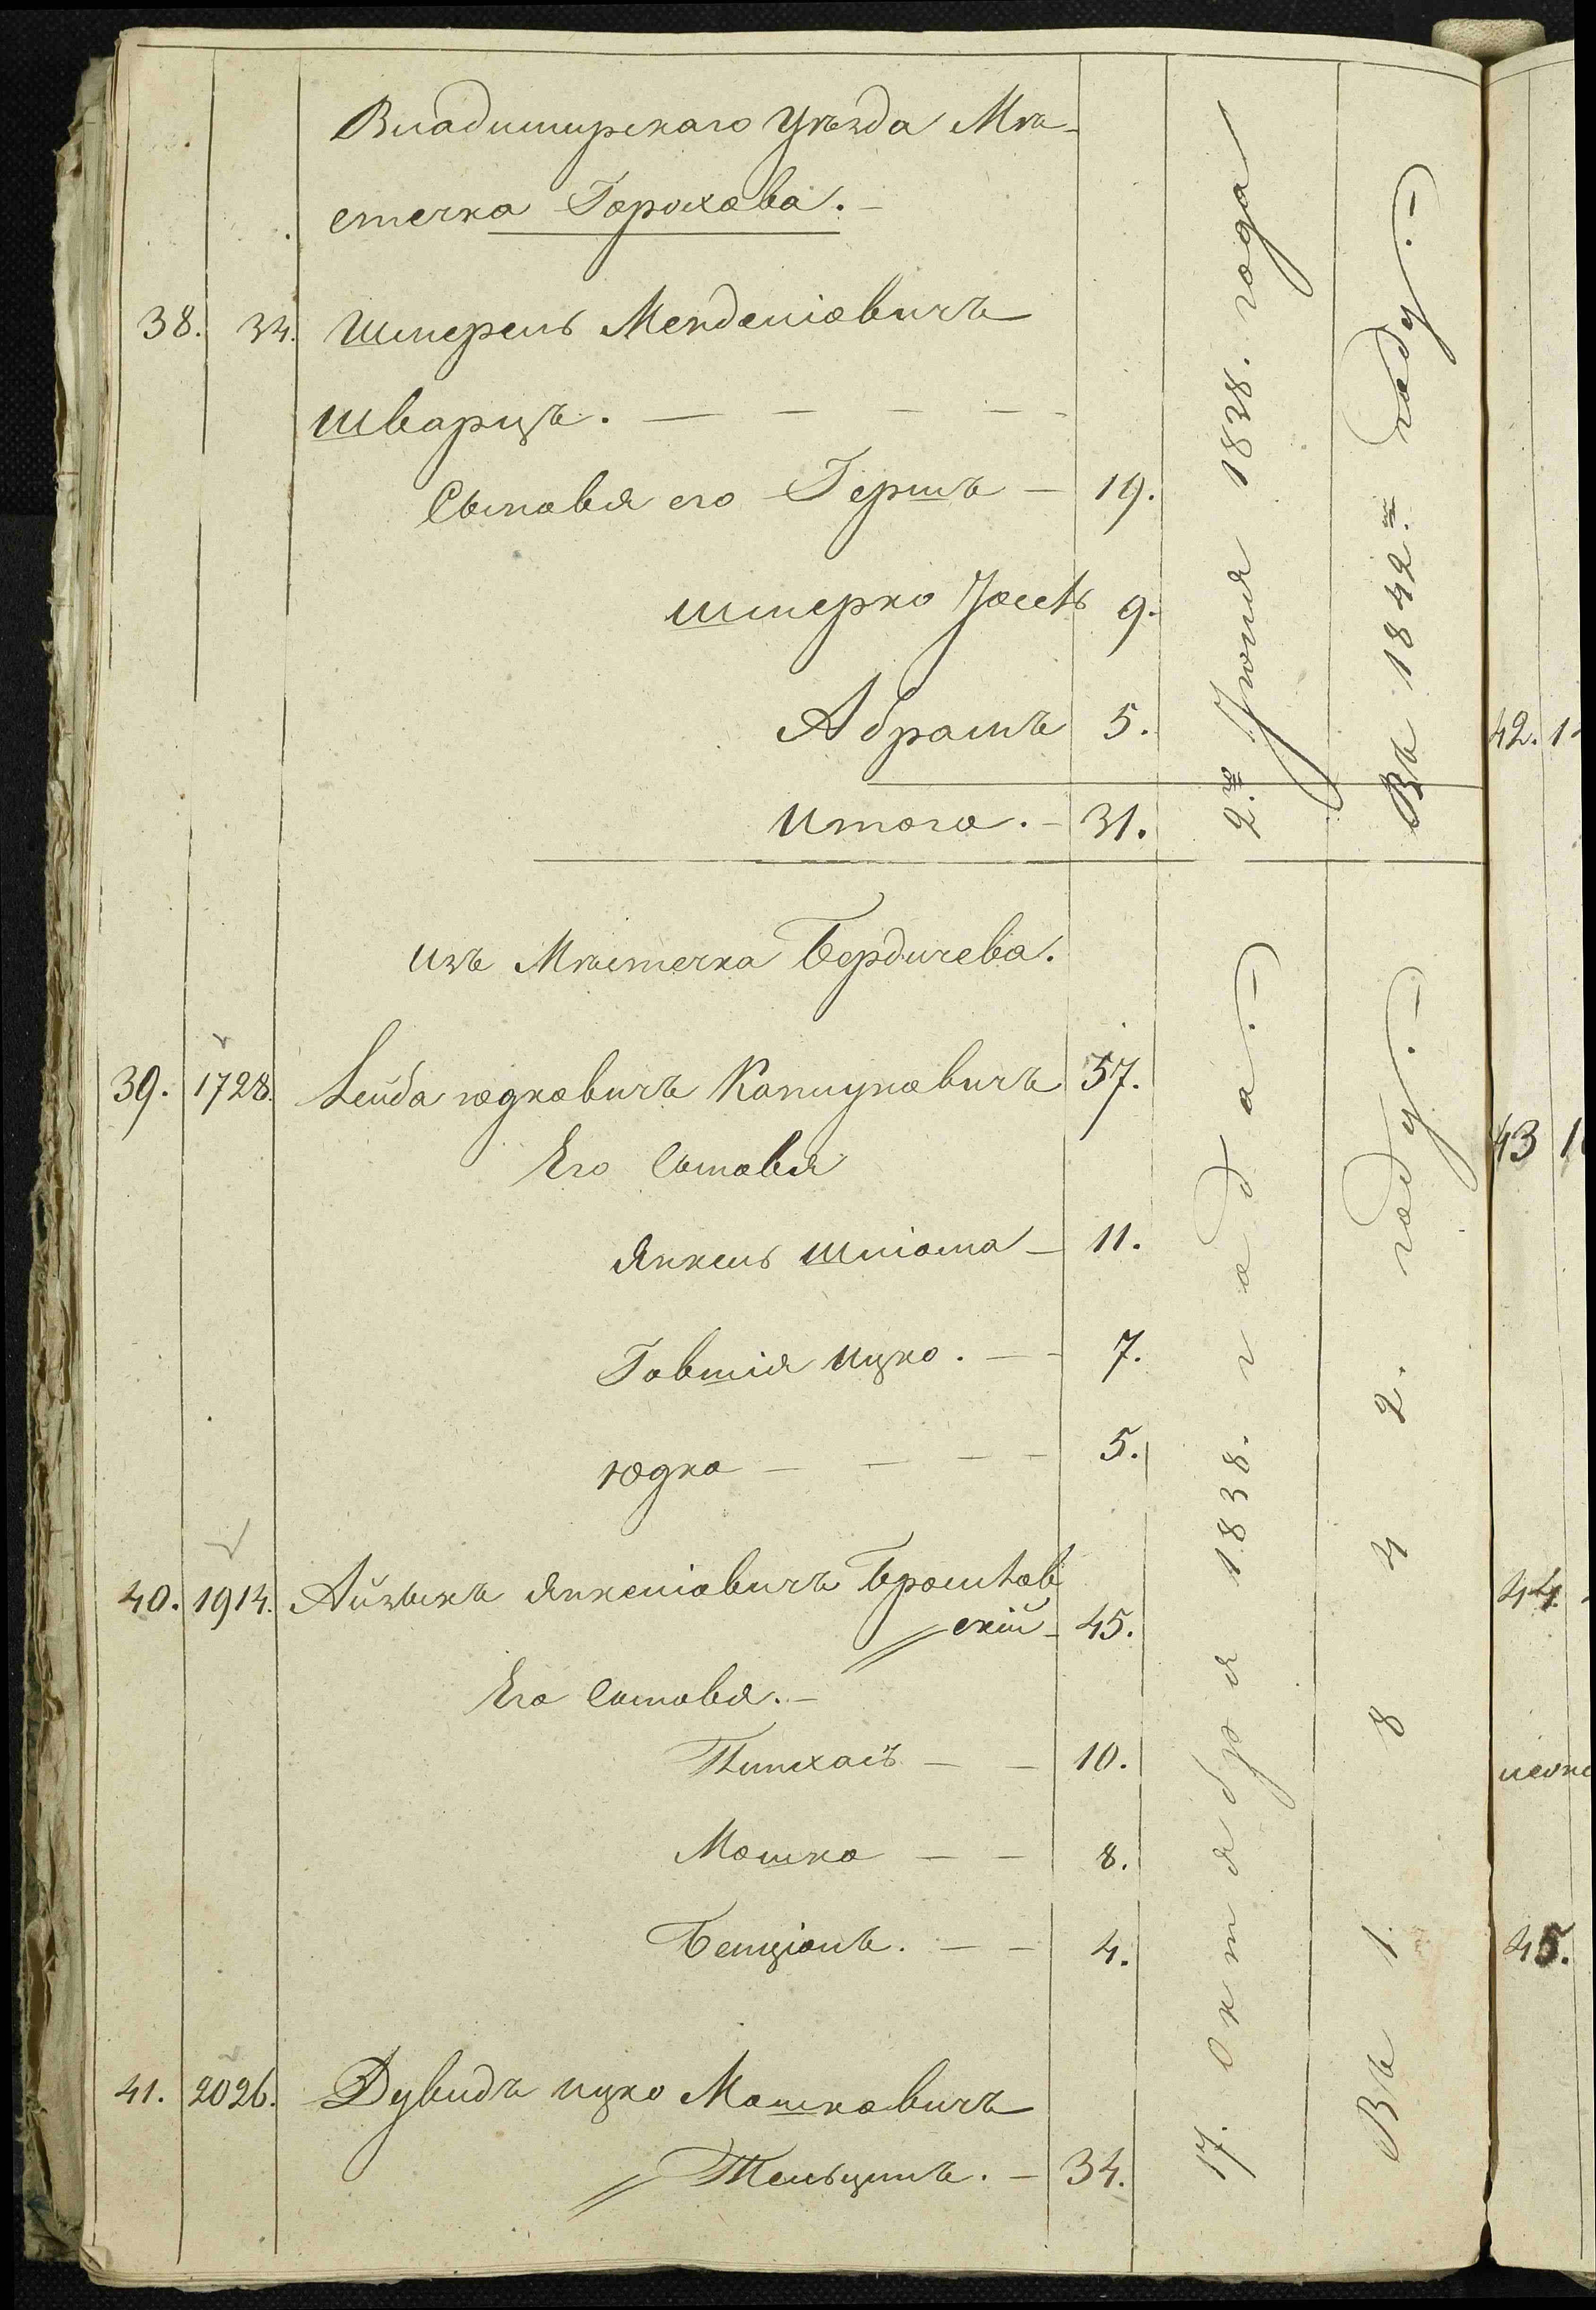 Владимирскаго Уѣзда Мѣ-
стечка Горохова.
38. 34. Шмерель Менделіовичъ
Шварцъ.
Сыновья его Гершъ 19.
Шмерко Іось 9.
Абрамъ 5.
Итого. 31.
2.го Іюня 1838. года
Въ 1842.м году.
Изъ Мѣстечка Бердичева.
39. 1728. Лейба Юдковичъ Капцуновичъ 37.
Его Сыновья
Янкель Шліома 11.
Говшія Ицко. 7.
Юдка 5.
40. 1914. Айзыкъ Янкеліовичъ Броштов
скій 45.
Его Сыновья.
Пинхасъ 10.
Мошко 8.
Бенціонъ. 4.
41. 2026. Дувидъ Ицко Мошковичъ
Тельцинъ. 34.
17. Октября 1838. года.
Въ 1842. году.
42.
43
44.
45.